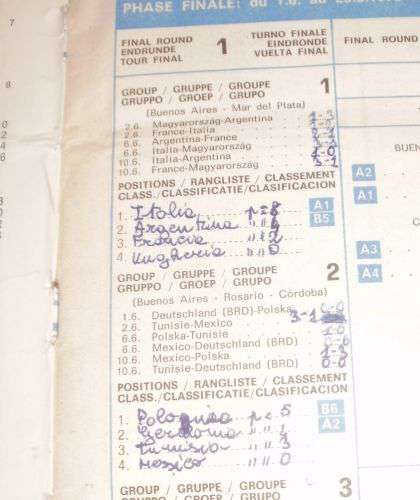 PHASE FINALE: du 1.6. au
FINAL ROUND
ENDRUNDE
TOUR FINAL
1
TURNO FINALE
EINDRONDE
VUELTA FINAL
FINAL ROUND
GROUP / GRUPPE / GROUPE
GRUPPO / GROEP / GRUPO
1
(Buenos Aires - Mar del Plata)
2.6. Magyarország-Argentina
2.6. France-Italia
6.6. Argentina-France
6.6. Italia-Magyarország 1-0
10.6. Italia-Argentina
10.6. France-Magyarország 3-1
POSITIONS / RANGLISTE / CLASSEMENT
CLASS./CLASSIFICATIE/CLASIFICACION
1. Italia p=8 A1
2. Argentina " " 4 B5
3. Francia " " 2
4. Ungheria " " 0
A2
A1
A3
A4
GROUP / GRUPPE / GROUPE
GRUPPO / GROEP / GRUPO
2
(Buenos Aires - Rosario - Córdoba)
1.6. Deutschland (BRD)-Polska 0-0
2.6. Tunisie-Mexico 3-1
6.6. Polska-Tunisie 1-0
6.6. Mexico-Deutschland (BRD)
10.6. Mexico-Polska 1-3
10.6. Tunisie-Deutschland (BRD) 0-0
POSITIONS / RANGLISTE / CLASSEMENT
CLASS./CLASSIFICATIE/CLASIFICACION
1. p= 5 B6
2. A2
3. Tunisia " " 3
4. Messico " " 0
GROUP / GRUPPE / GROUPE
GRUPPO / GROEP / GRUPO
3